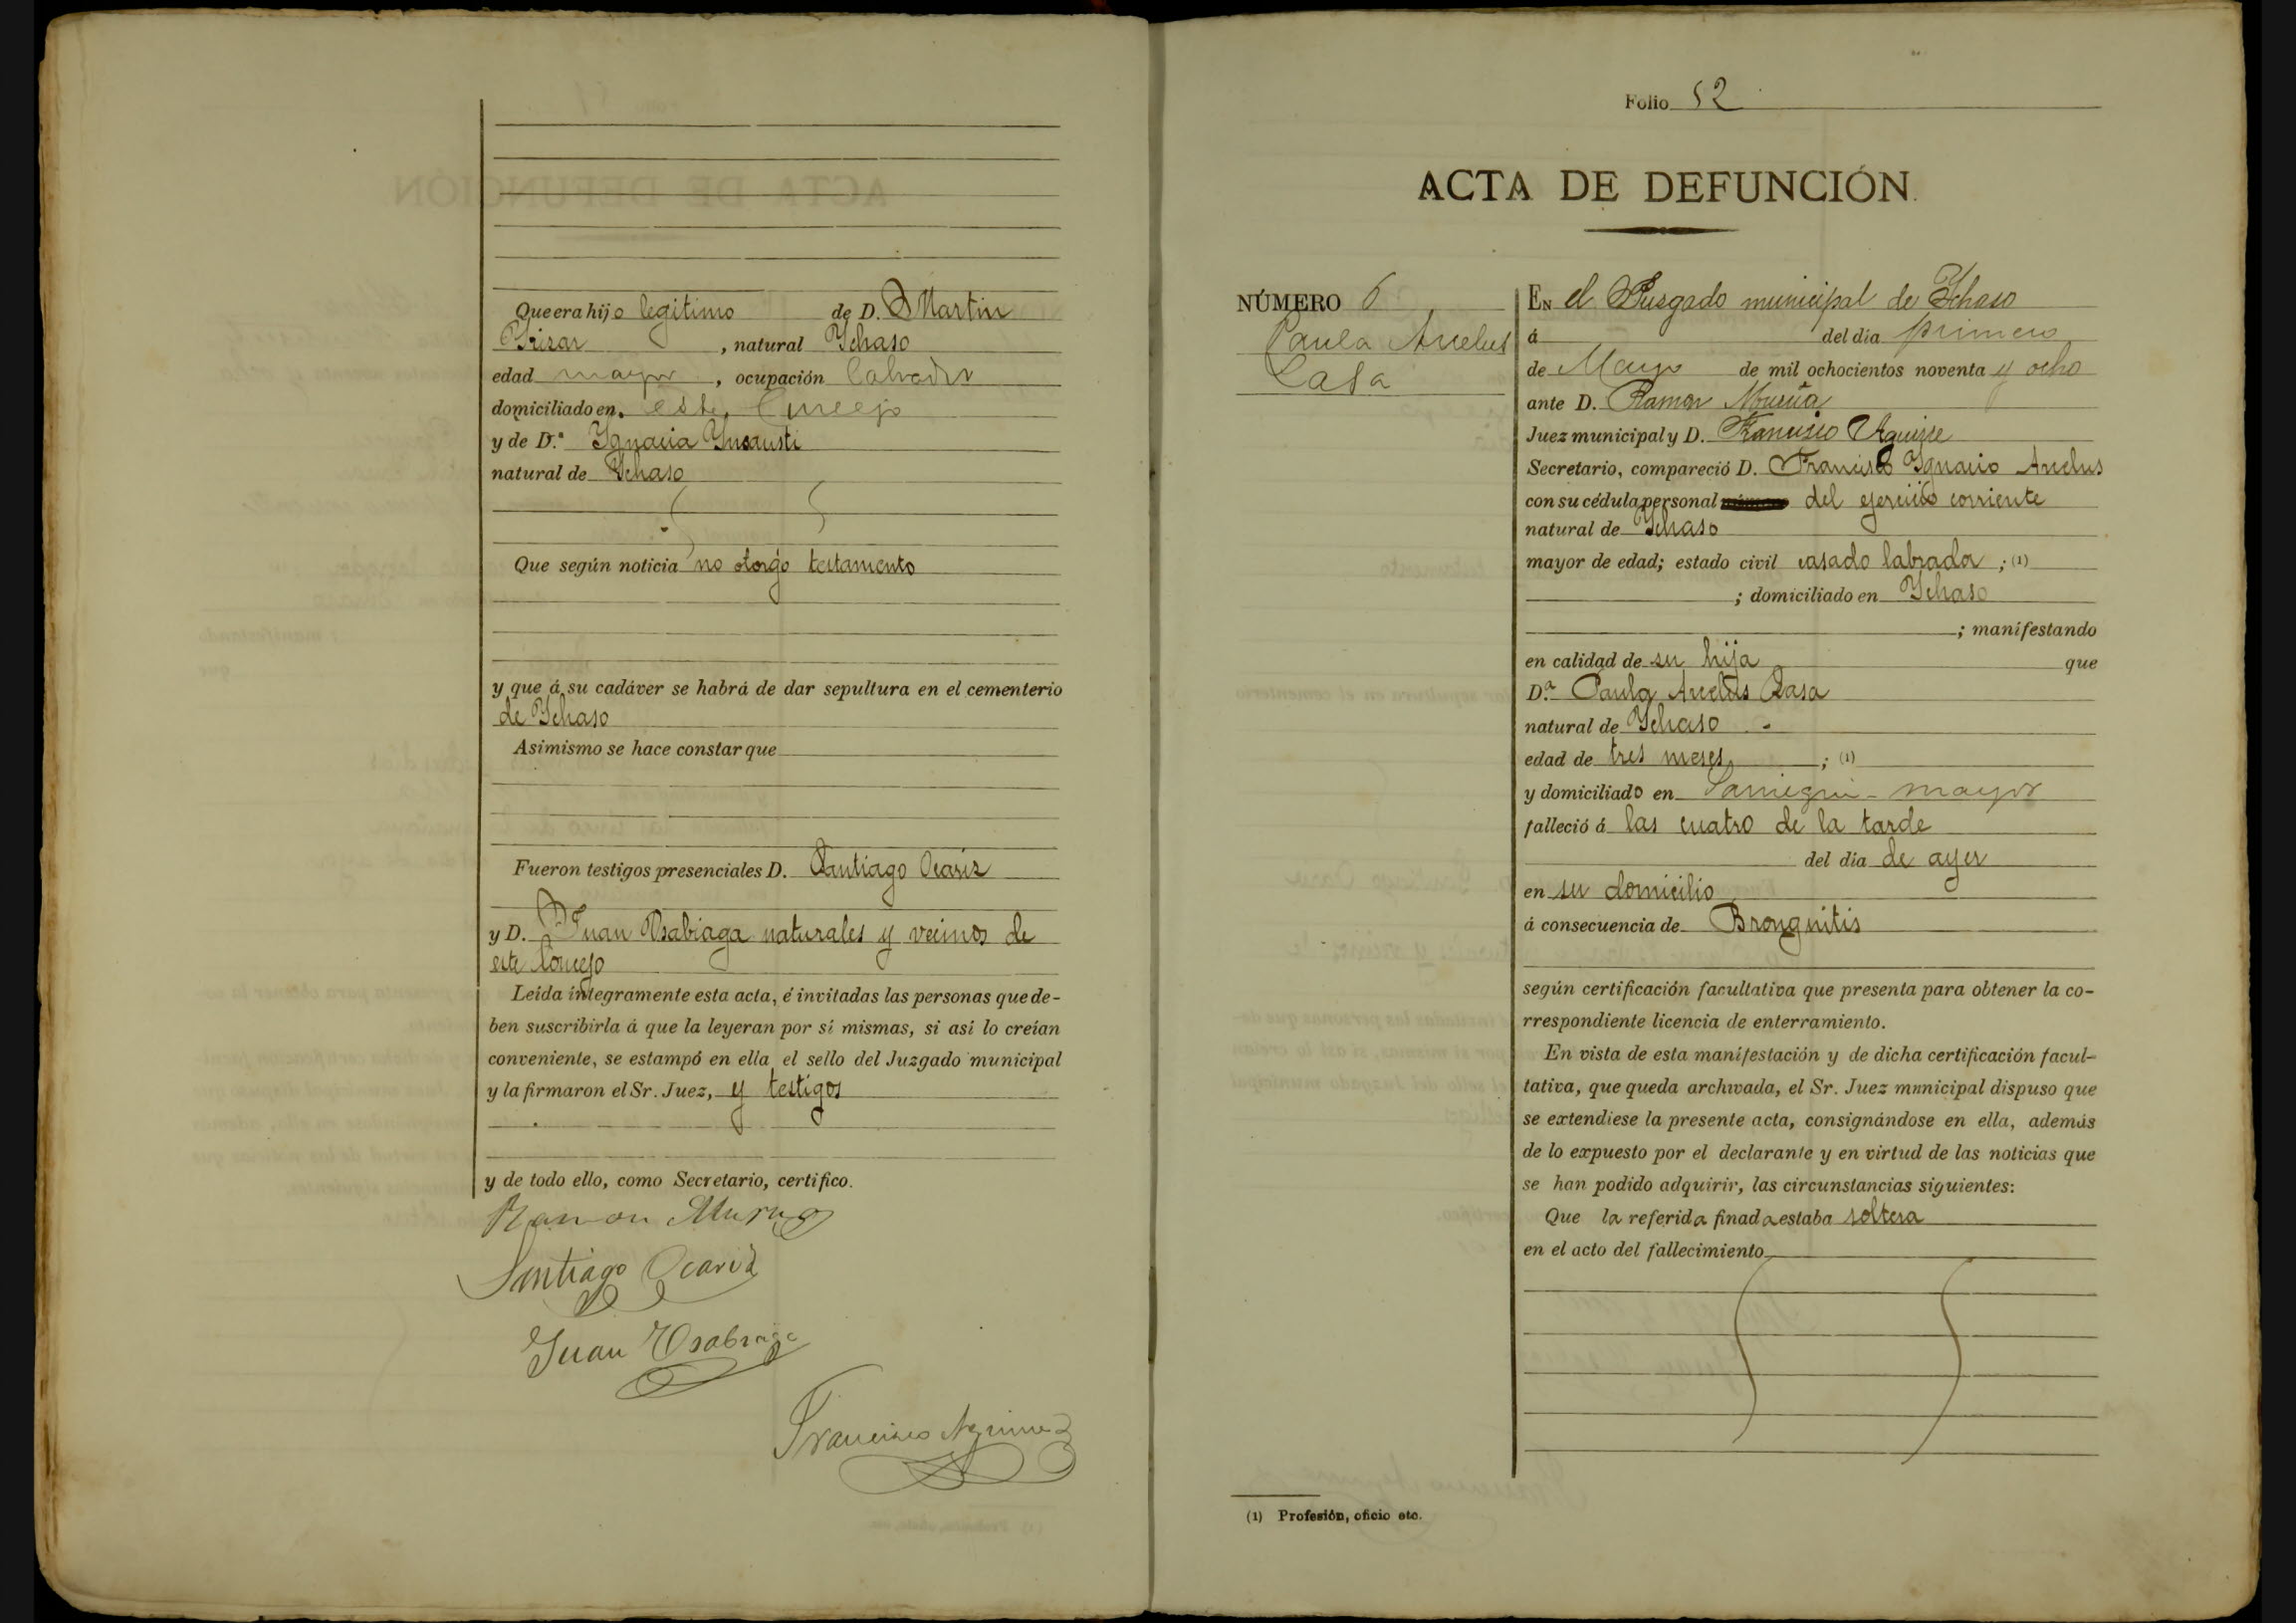 Que era hijo legitimo de D. Martin
Yrizar, natural Ychaso
edad mayor, ocupación labrador
domiciliado en este Concejo
y de D.ª Ygnacia Ynsausti
natural de Ychaso
Que según noticia no otorgo testamento
y que á su cadáver se habrá de dar sepultura en el cementerio
de Ychaso
Asimismo se hace constar que
Fueron testigos presenciales D. Santiago Ocariz
y D. Juan Osabiaga naturales y vecinos de
este Concejo
Leída íntegramente esta acta, é invitadas las personas que de-
ben suscribirla á que la leyeran por sí mismas, si así lo creían
conveniente, se estampó en ella el sello del Juzgado municipal
y la firmaron el Sr. Juez, y testigos
y de todo ello, como Secretario, certifico.
Ramon
Santiago Ocariz
Juan Osabiaga
Francisco Aguirre
Folio 52
ACTA DE DEFUNCIÓN.
NÚMERO 6
Paula Arcelus
Lasa
EN el Jusgado municipal de Ychaso
á del dia primero
de Mayo de mil ochocientos noventa y ocho
ante D. Ramon
Juez municipal y D. Francisco Aguirre
Secretario, compareció D. Francisco Ygnacio Arcelus
con su cédula personal del ejercicio corriente
natural de Ychaso
mayor de edad; estado civil casado labrador ; (1)
; domiciliado en Ychaso
; manifestando
en calidad de su hija que
D.ª Paula Arcelus Lasa
natural de Ychaso
edad de tres meses ; (1)
y domiciliado en mayor
falleció á las cuatro de la tarde
del dia de ayer
en su domicilio
á consecuencia de Bronquitis
según certificación facultativa que presenta para obtener la co-
rrespondiente licencia de enterramiento.
En vista de esta manifestación y de dicha certificación facul-
tativa, que queda archivada, el Sr. Juez mnnicipal dispuso que
se extendiese la presente acta, consignándose en ella, además
de lo expuesto por el declarante y en virtud de las noticias que
se han podido adquirir, las circunstancias siguientes:
Que la referida finada estaba soltera
en el acto del fallecimiento
(1) Profesión, oficio etc.